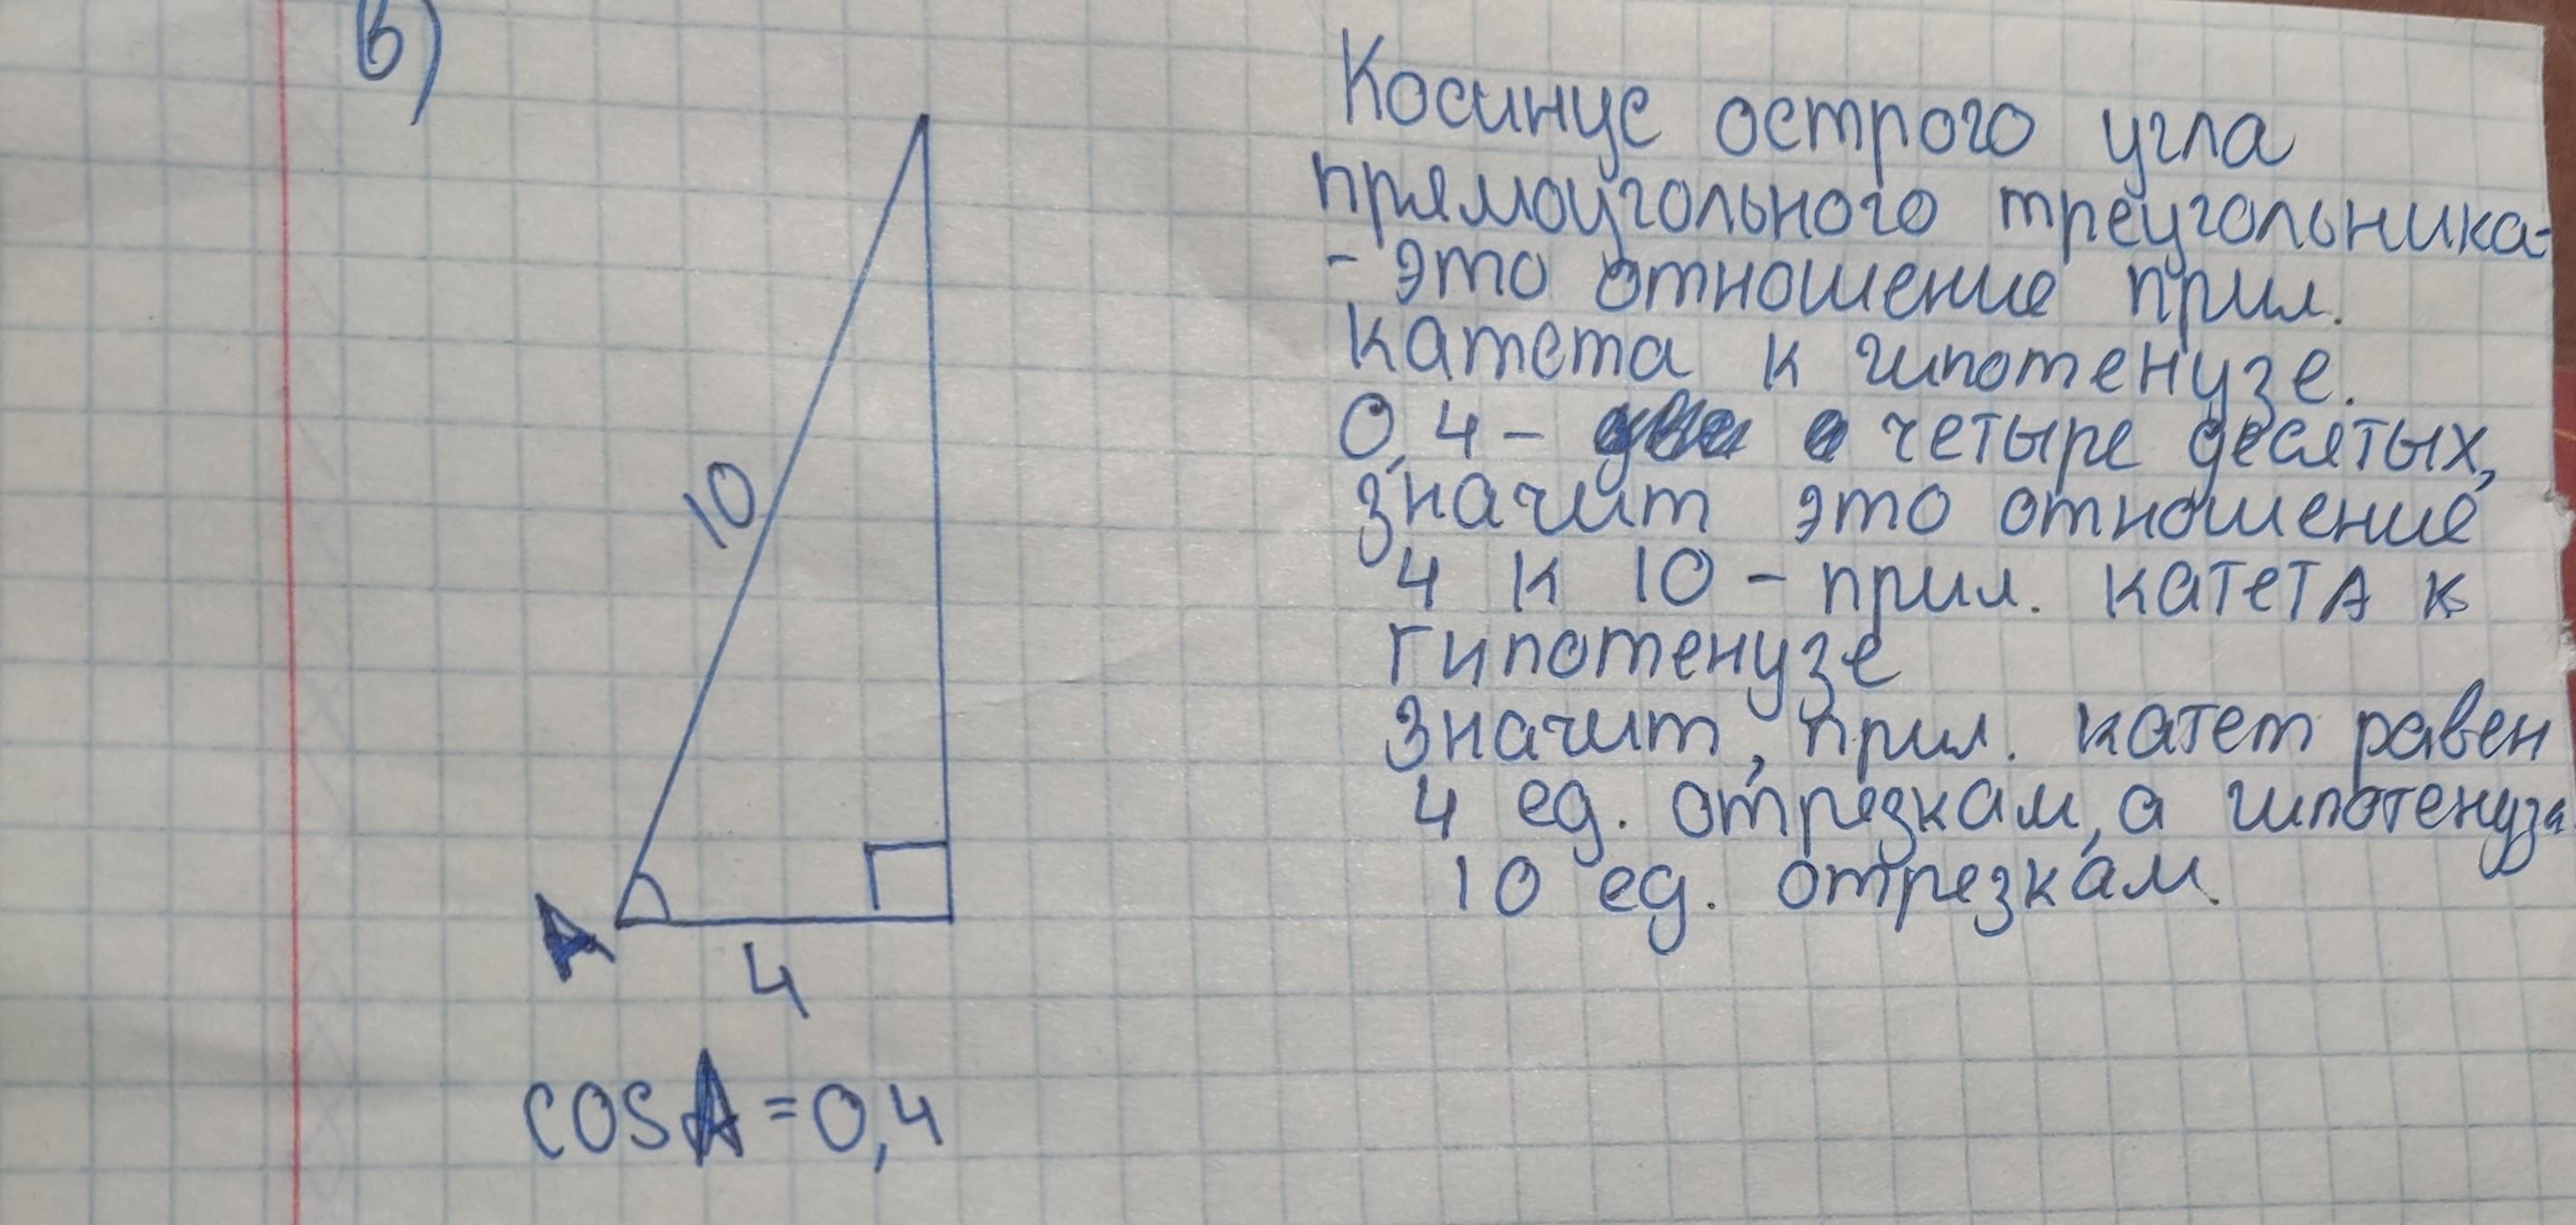 в)
10
А
4
cosA=0,4
Косинус острого угла
прямоугольного треугольника-
- это отношение прил.
катета к гипотенузе.
0,4- четыре десятых,
значит это отношение
4 к 10 - прил. катета к
гипотенузе
Значит, прил. катет равен
4 ед. отрезкам, а гипотенуза
10 ед. отрезкам.